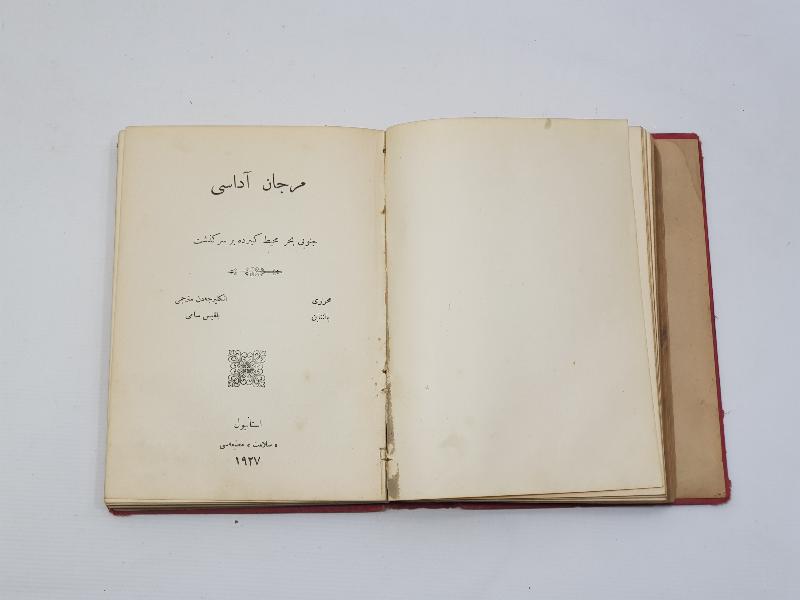 مرجان آداسی
جنوبی بحر محیط كبیرده بر سركذشت
محرری
بالنتاین
انكلیزجه‌دن مترجمی
بلقیس سامی
استانبول
« سلامت » مطبعه‌سی
١٩٢٧